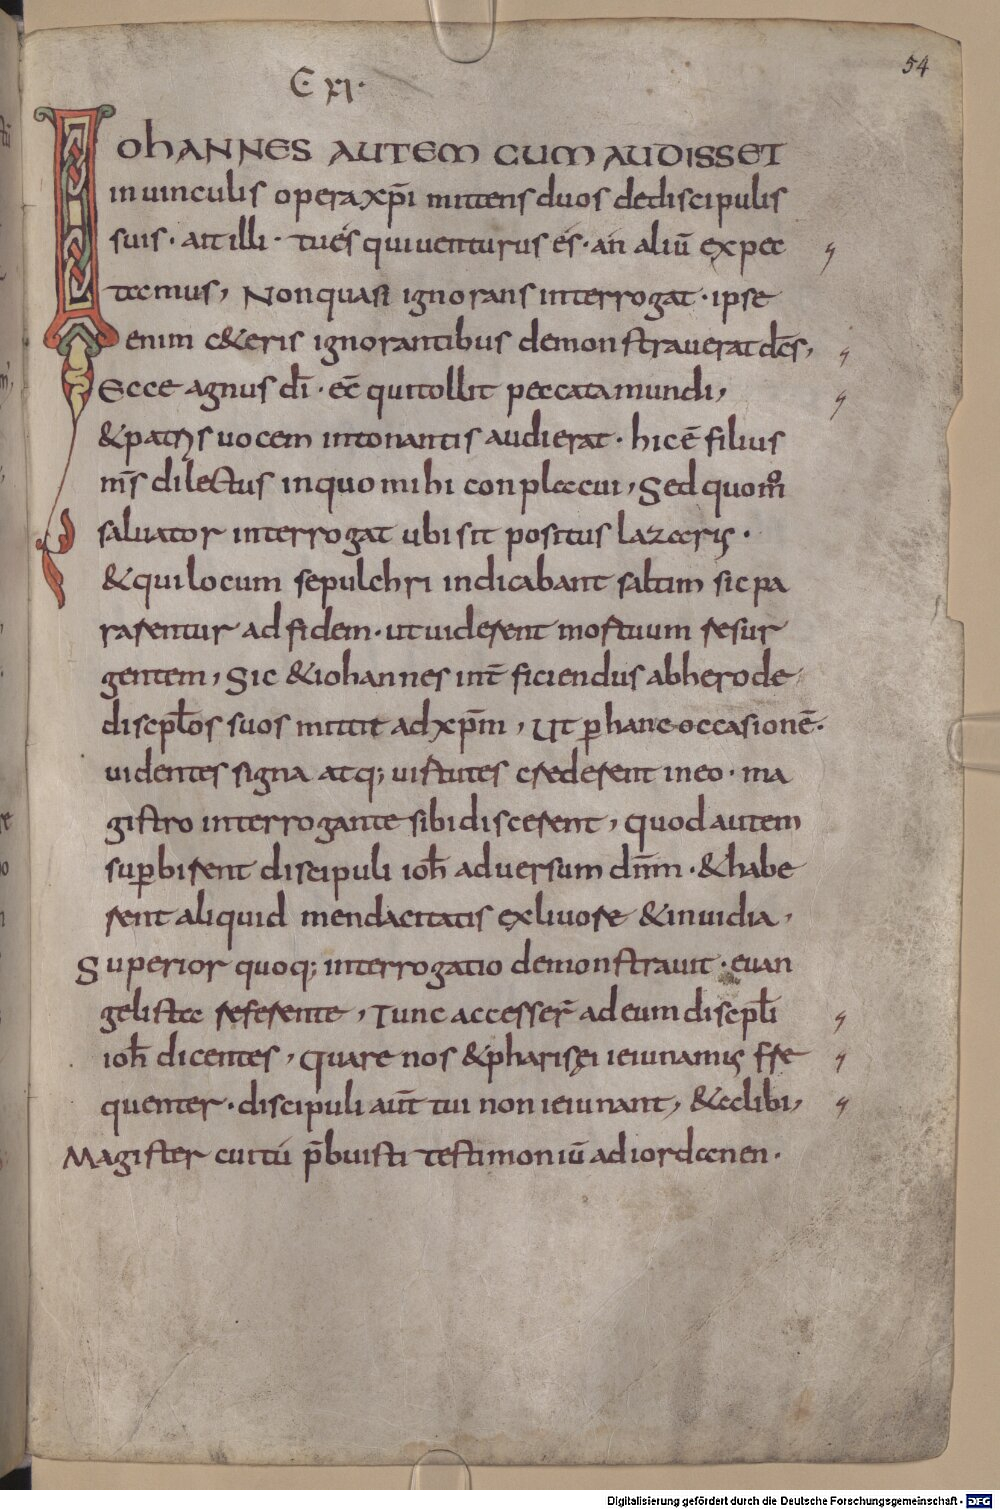 54
C· XI·
IOHANNES AUTEM CUM AUDISSET
in uinculis opera xp̄i mittens duos de discipulis
suis · ait illi · tu és qui uenturus és · án aliū expec
tamus, Non quasi ignorans interrogat · ipse
enim & ceteris ignorantibus demonstrauerat dc̄s,
Ecce agnus dī · ec̄ qui tollit peccata mundi,
& patris uocem intonantis audierat · hic ē filius
m̄s dilectus in quo mihi conplacui, Sed quom̊
saluator interrogat ubi sit positus lazarus ·
& qui locum sepulchri indicabant saltim sic pa
rarentur ad fidem · ut uiderent mortuum resur
gentem, Sic & iohannes int̄ ficiendus ab herode
discipl̄os suos mittit ad xp̄m, Ut p hanc occasionē ·
uidentes signa atq; uirtutes crederent in eo · ma
gistro interrogante sibi discerent, quod autem
superbirent discipuli ioh̄ aduersum dn̄m · & habe
rent aliquid mendacitatis ex liuore & inuidia,
Superior quoq; interrogatio demonstrauit · euan
gelista referente, Tunc accesser̄ ad eum discipl̄i
ioh̄ dicentes, quare nos & pharisęi ieiunamus fre
quenter · discipuli aut̄ tui non ieiunant, & alibi,
Magister cui tú p̄buisti testimoniū ad iordanen ·
Digitalisierung gefördert durch die Deutsche Forschungsgemeinschaft - DFG